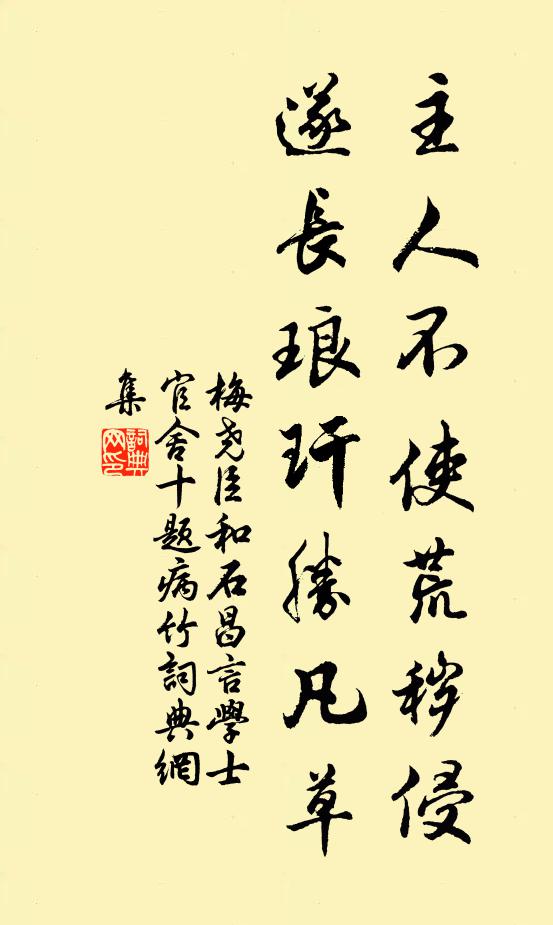 主人不使荒秽侵
遂長琅玕勝凡草
梅尧臣和石昌言學士
官舍十题病竹詞典網
集
詞典
网印